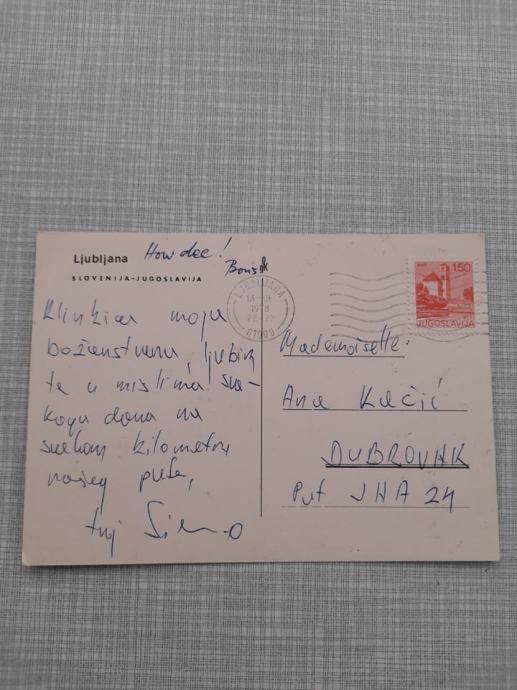 Ljubljana
SLOVENIJA-JUGOSLAVIJA
How dee!
Boris
LJUBLJANA
1978
61000
1.50
JUGOSLAVIJA
moja
božanstvena, ljubim
te u mislima sva-
koga dana na
svakom kilometru
našeg puta,
tvoj
Mademoiselle:
Ana Kačić
DUBROVNIK
Put JNA 24